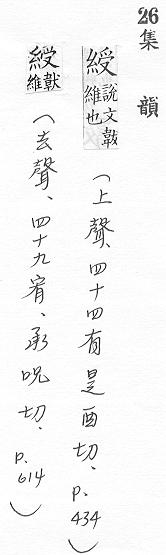 26 集韻
綬 說文韍維也 (上聲、四十四有是酉切、p.434)
綬 韍維 (去聲、四十九宥、承呪切、p.614)